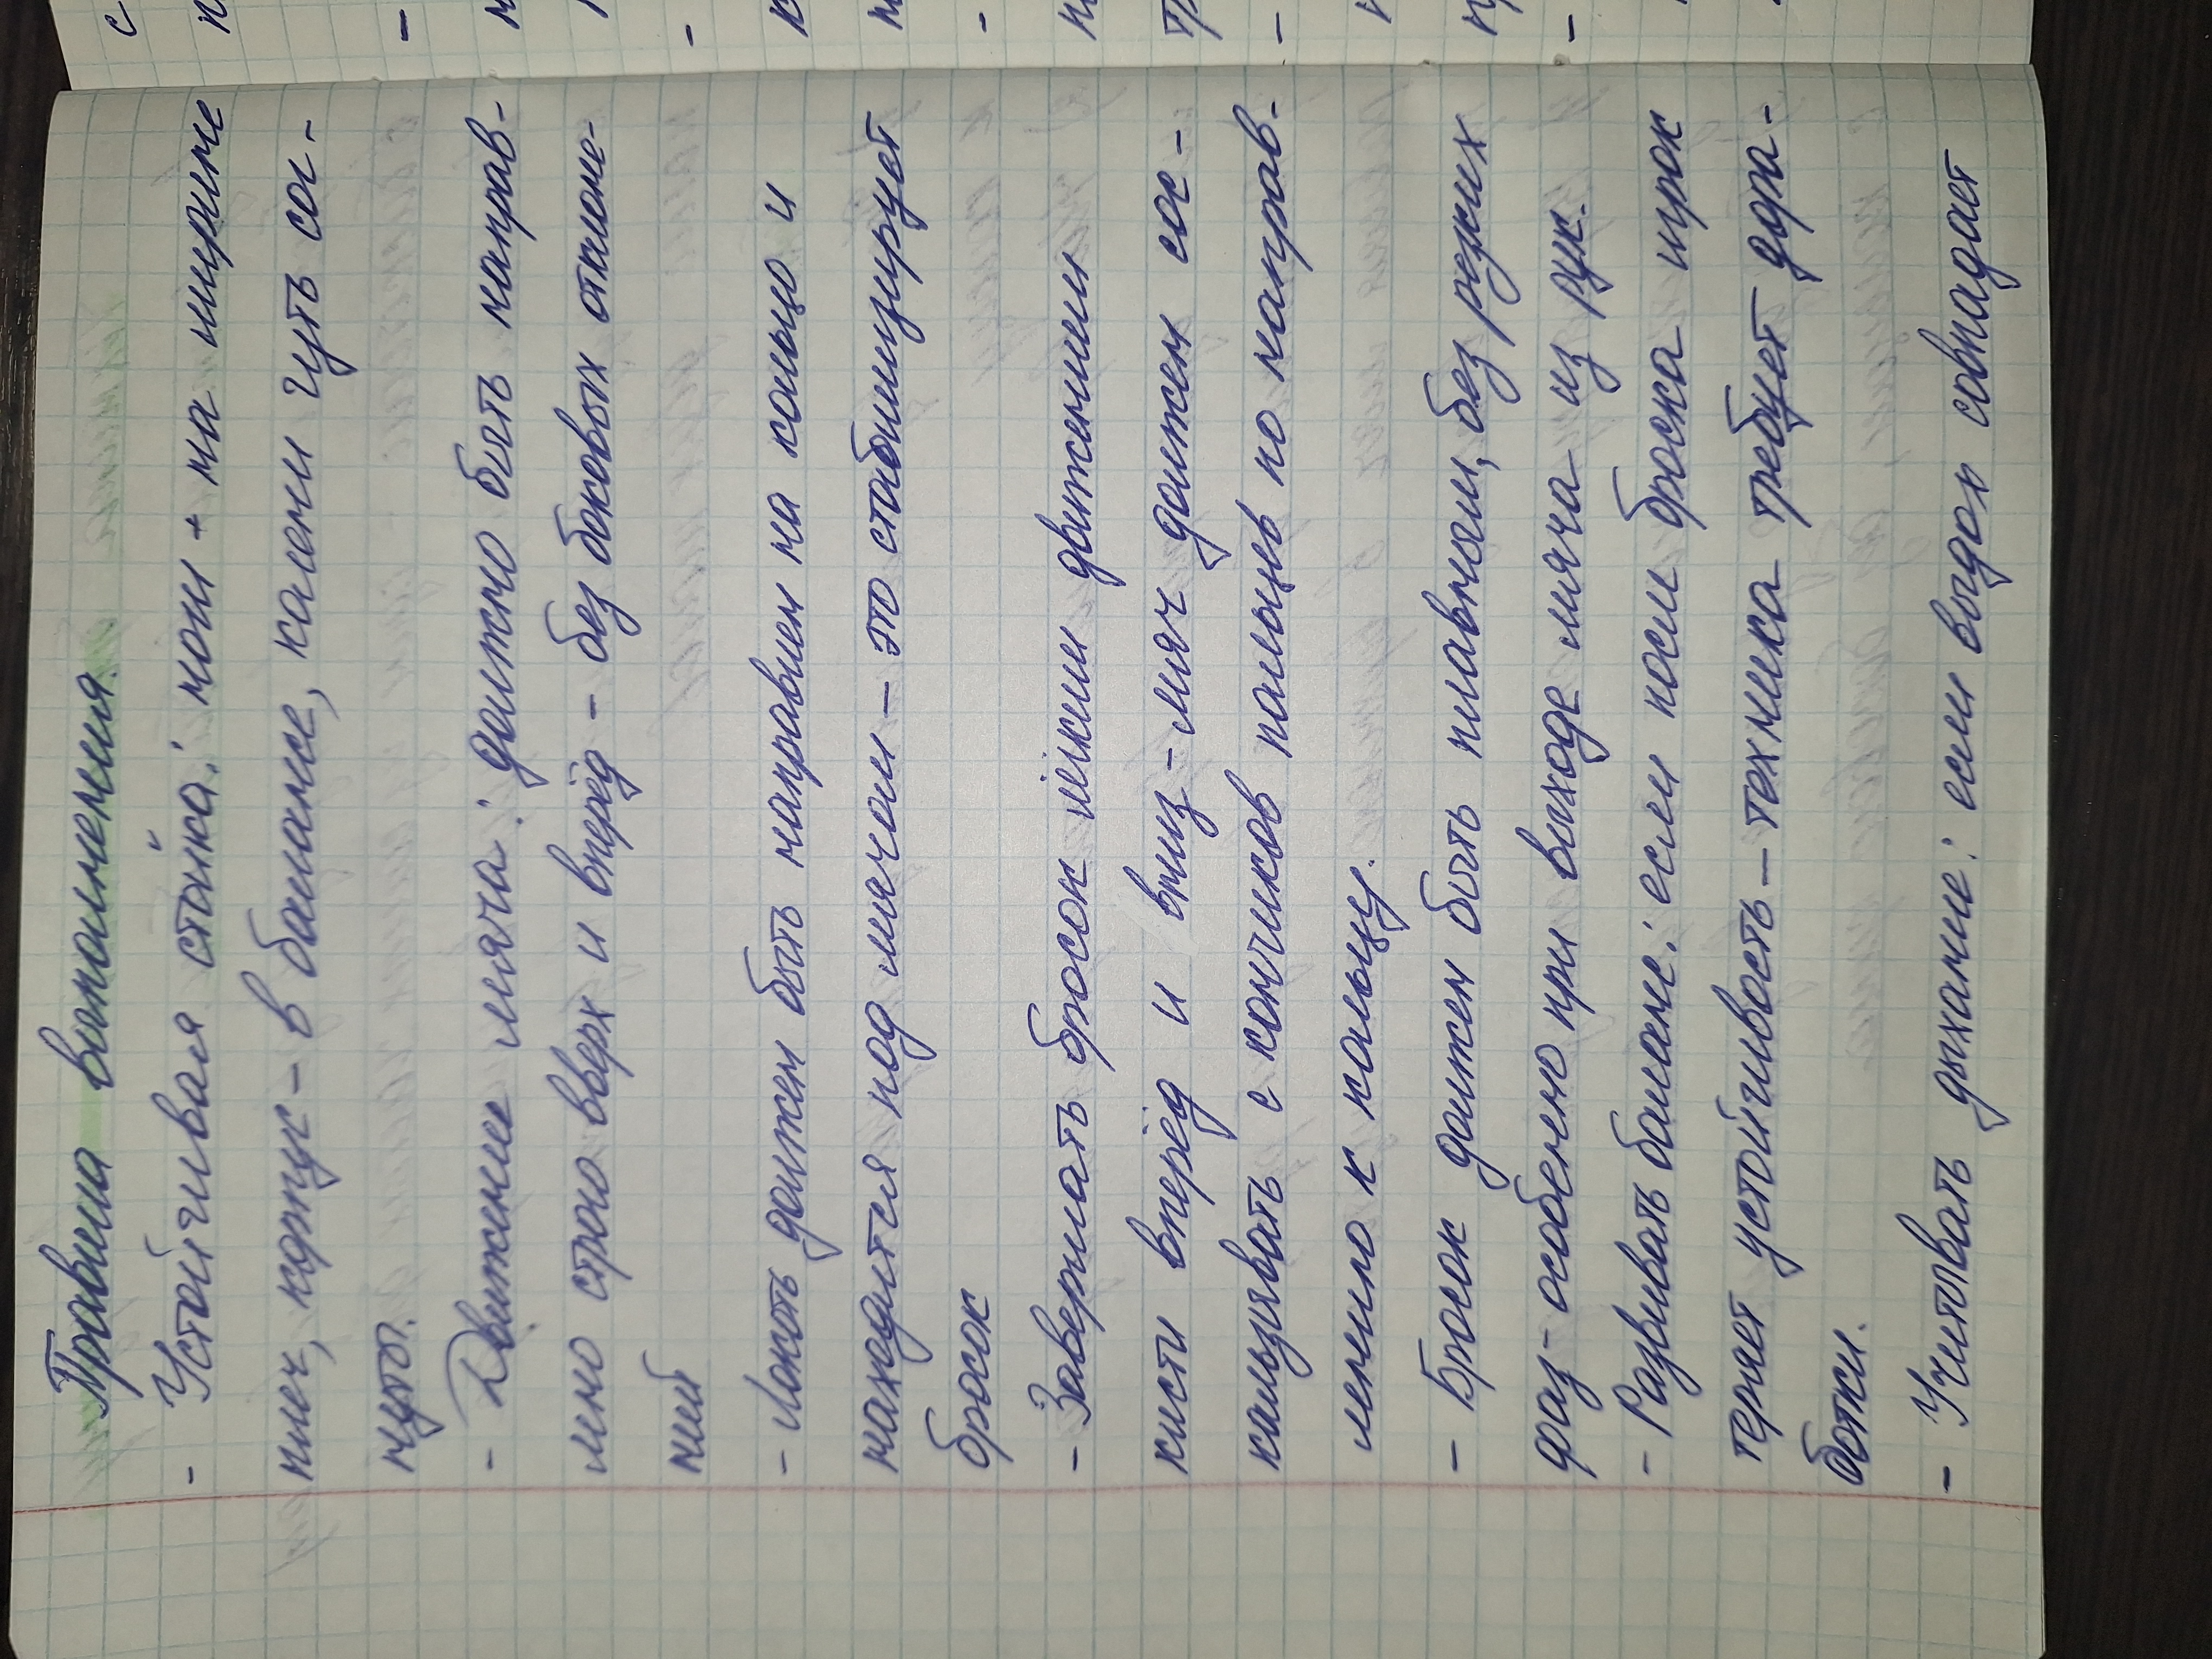 Правила выполнения.
- Устойчивая стойка: ноги + на ширине
плеч, корпус - в балансе, колени чуть сог-
нуты.
- Движение мяча: должно быть направ-
лено строго вверх и вперёд - без боковых отклоне-
ний
- Локоть должен быть направлен на кольцо и
находится под мячом - это стабилизирует
бросок
- Завершать бросок лёгким движением
кисти вперёд и вниз - мяч должен сос-
кальзывать с кончиков пальцев по направ-
лению к кольцу.
- Бросок должен быть плавным, без резких
фаз - особенно при выходе мяча из рук.
- Развивать баланс: если после броска игрок
теряет устойчивость - техника требует дора-
ботки.
- Учитывать дыхание: если выдох совпадает